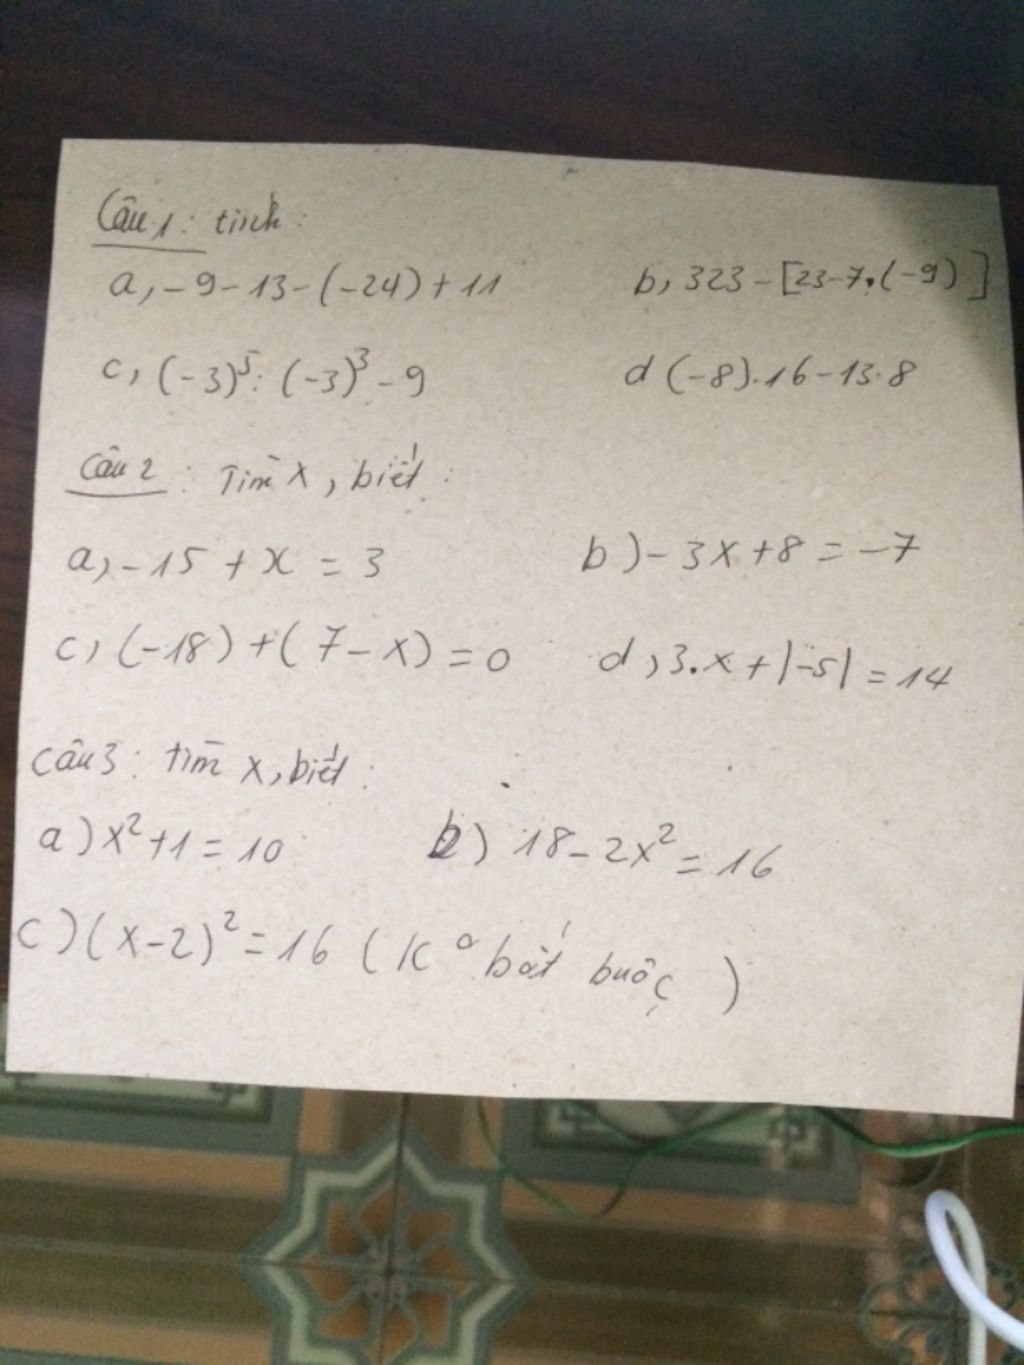 Câu 1: tính:
a, -9-13-(-24)+11 b, 323-[23-7.(-9)]
c, (-3)⁵: (-3)³-9 d (-8).16-13.8
Câu 2: Tìm x, biết:
a, -15+x=3 b)-3x+8=-7
c, (-18)+(7-x)=0 d, 3.x+|-5|=14
câu 3: tìm x, biết:
a) x²+1=10 b) 18-2x²=16
c) (x-2)²=16 (K° bắt buộc)